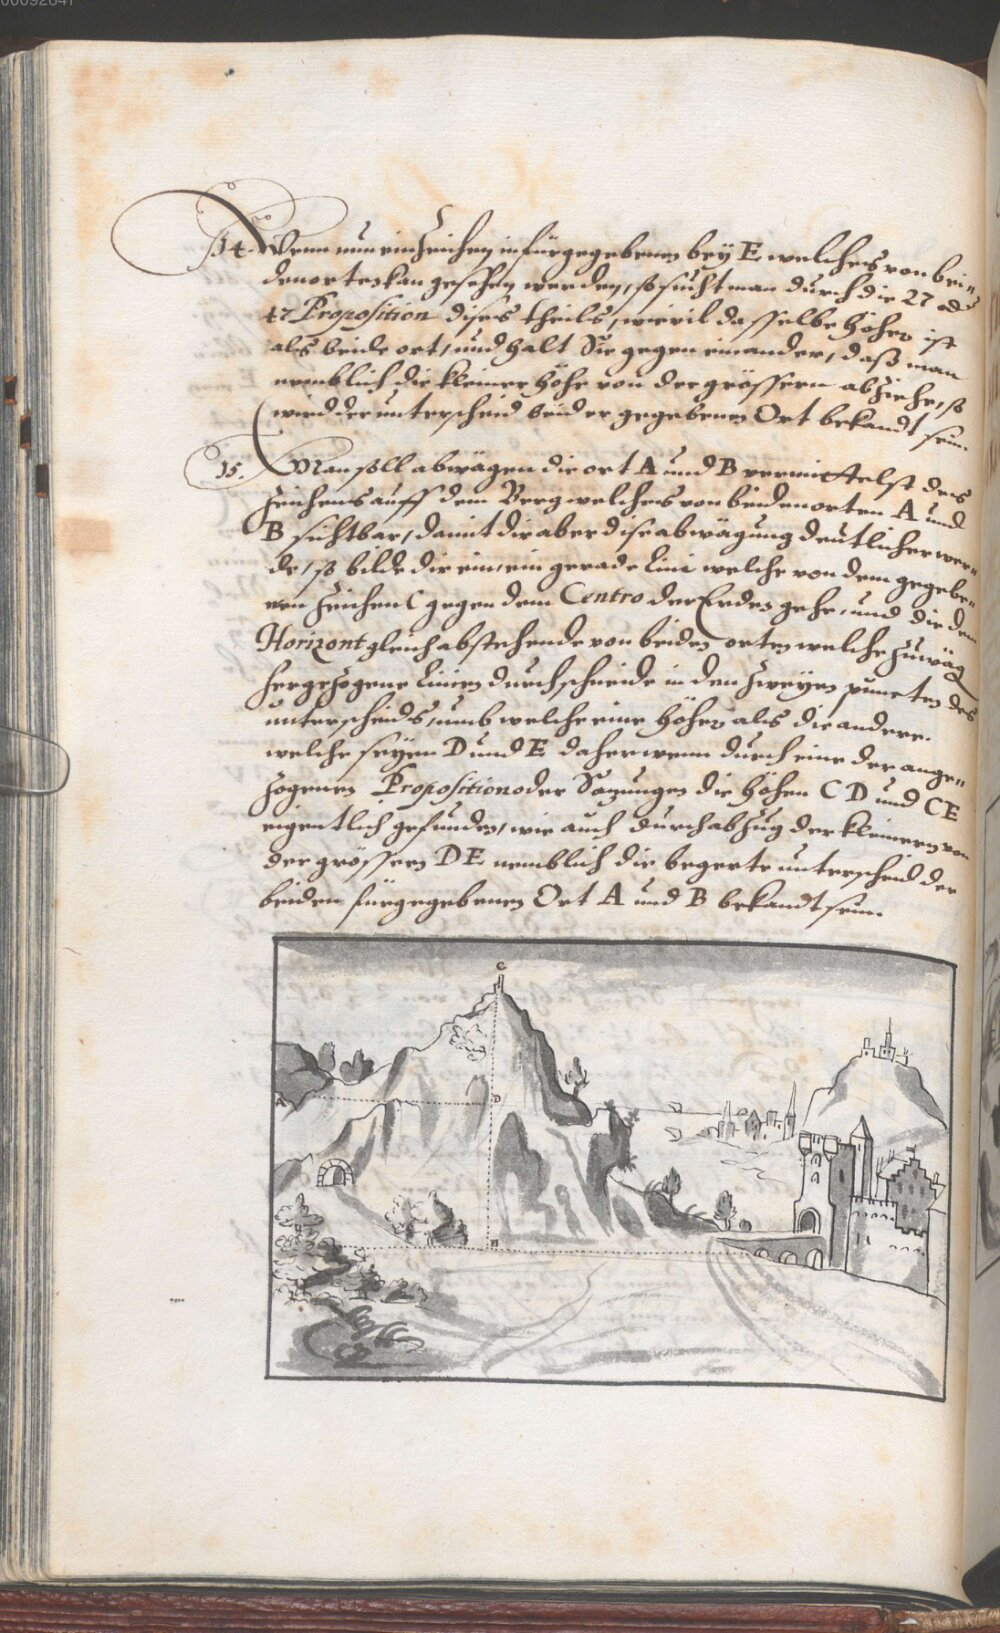 00092841
14. Wenn nun ein Zeichen in fürgegebenen bey E welches von bei-
den orten kan gesehen werden, so sucht man durch die 27 od
47 Proposition dises theils, wievil dasselbe höher ist
als beide ort, und halt Sie gegen einander, daß man
nemblich die kleiner höhe von der grössern abziehe, so
wird der unterscheid beider gegebenen Ort bekandt sein.
15. Man soll abwägen die ort A und B vermittelst des
Zeichens auff dem Berg welches von beiden orten A und
B sichtbar, damit dir aber dise abwägung deutlicher wer-
de, so bilde dir ein, ein gerade Lini welche von dem gegebe-
nen Zeichen C gegen dem Centro der Erden gehe, und die dem
Horizont gleich abstehende von beiden orten welche zuwäg
hergezogene Linien durchschneide in den zweyen puncten des
unterscheids, umb welche eine höher als die andere.
welche seyen D und E daher wenn durch eine der ange-
zogenen Proposition oder Sazungen die höhen CD und CE
eigentlich gefunden, wie auch durch abzug der kleinern von
der grössern DE nemblich die begerte unterscheid der
beiden fürgegebenen Ort A und B bekandt sein.
C
A D